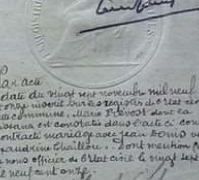 Par acte
date du vingt sept novembre mil neuf
onze inscrit sur le registre de l'état civil
la commune, Marie Prevost dont la
naissance est constatée dans l'acte ci cont
contracté mariage avec Jean
Dont mention f
nous officier de l'état civil à vingt sept
neuf cent onze